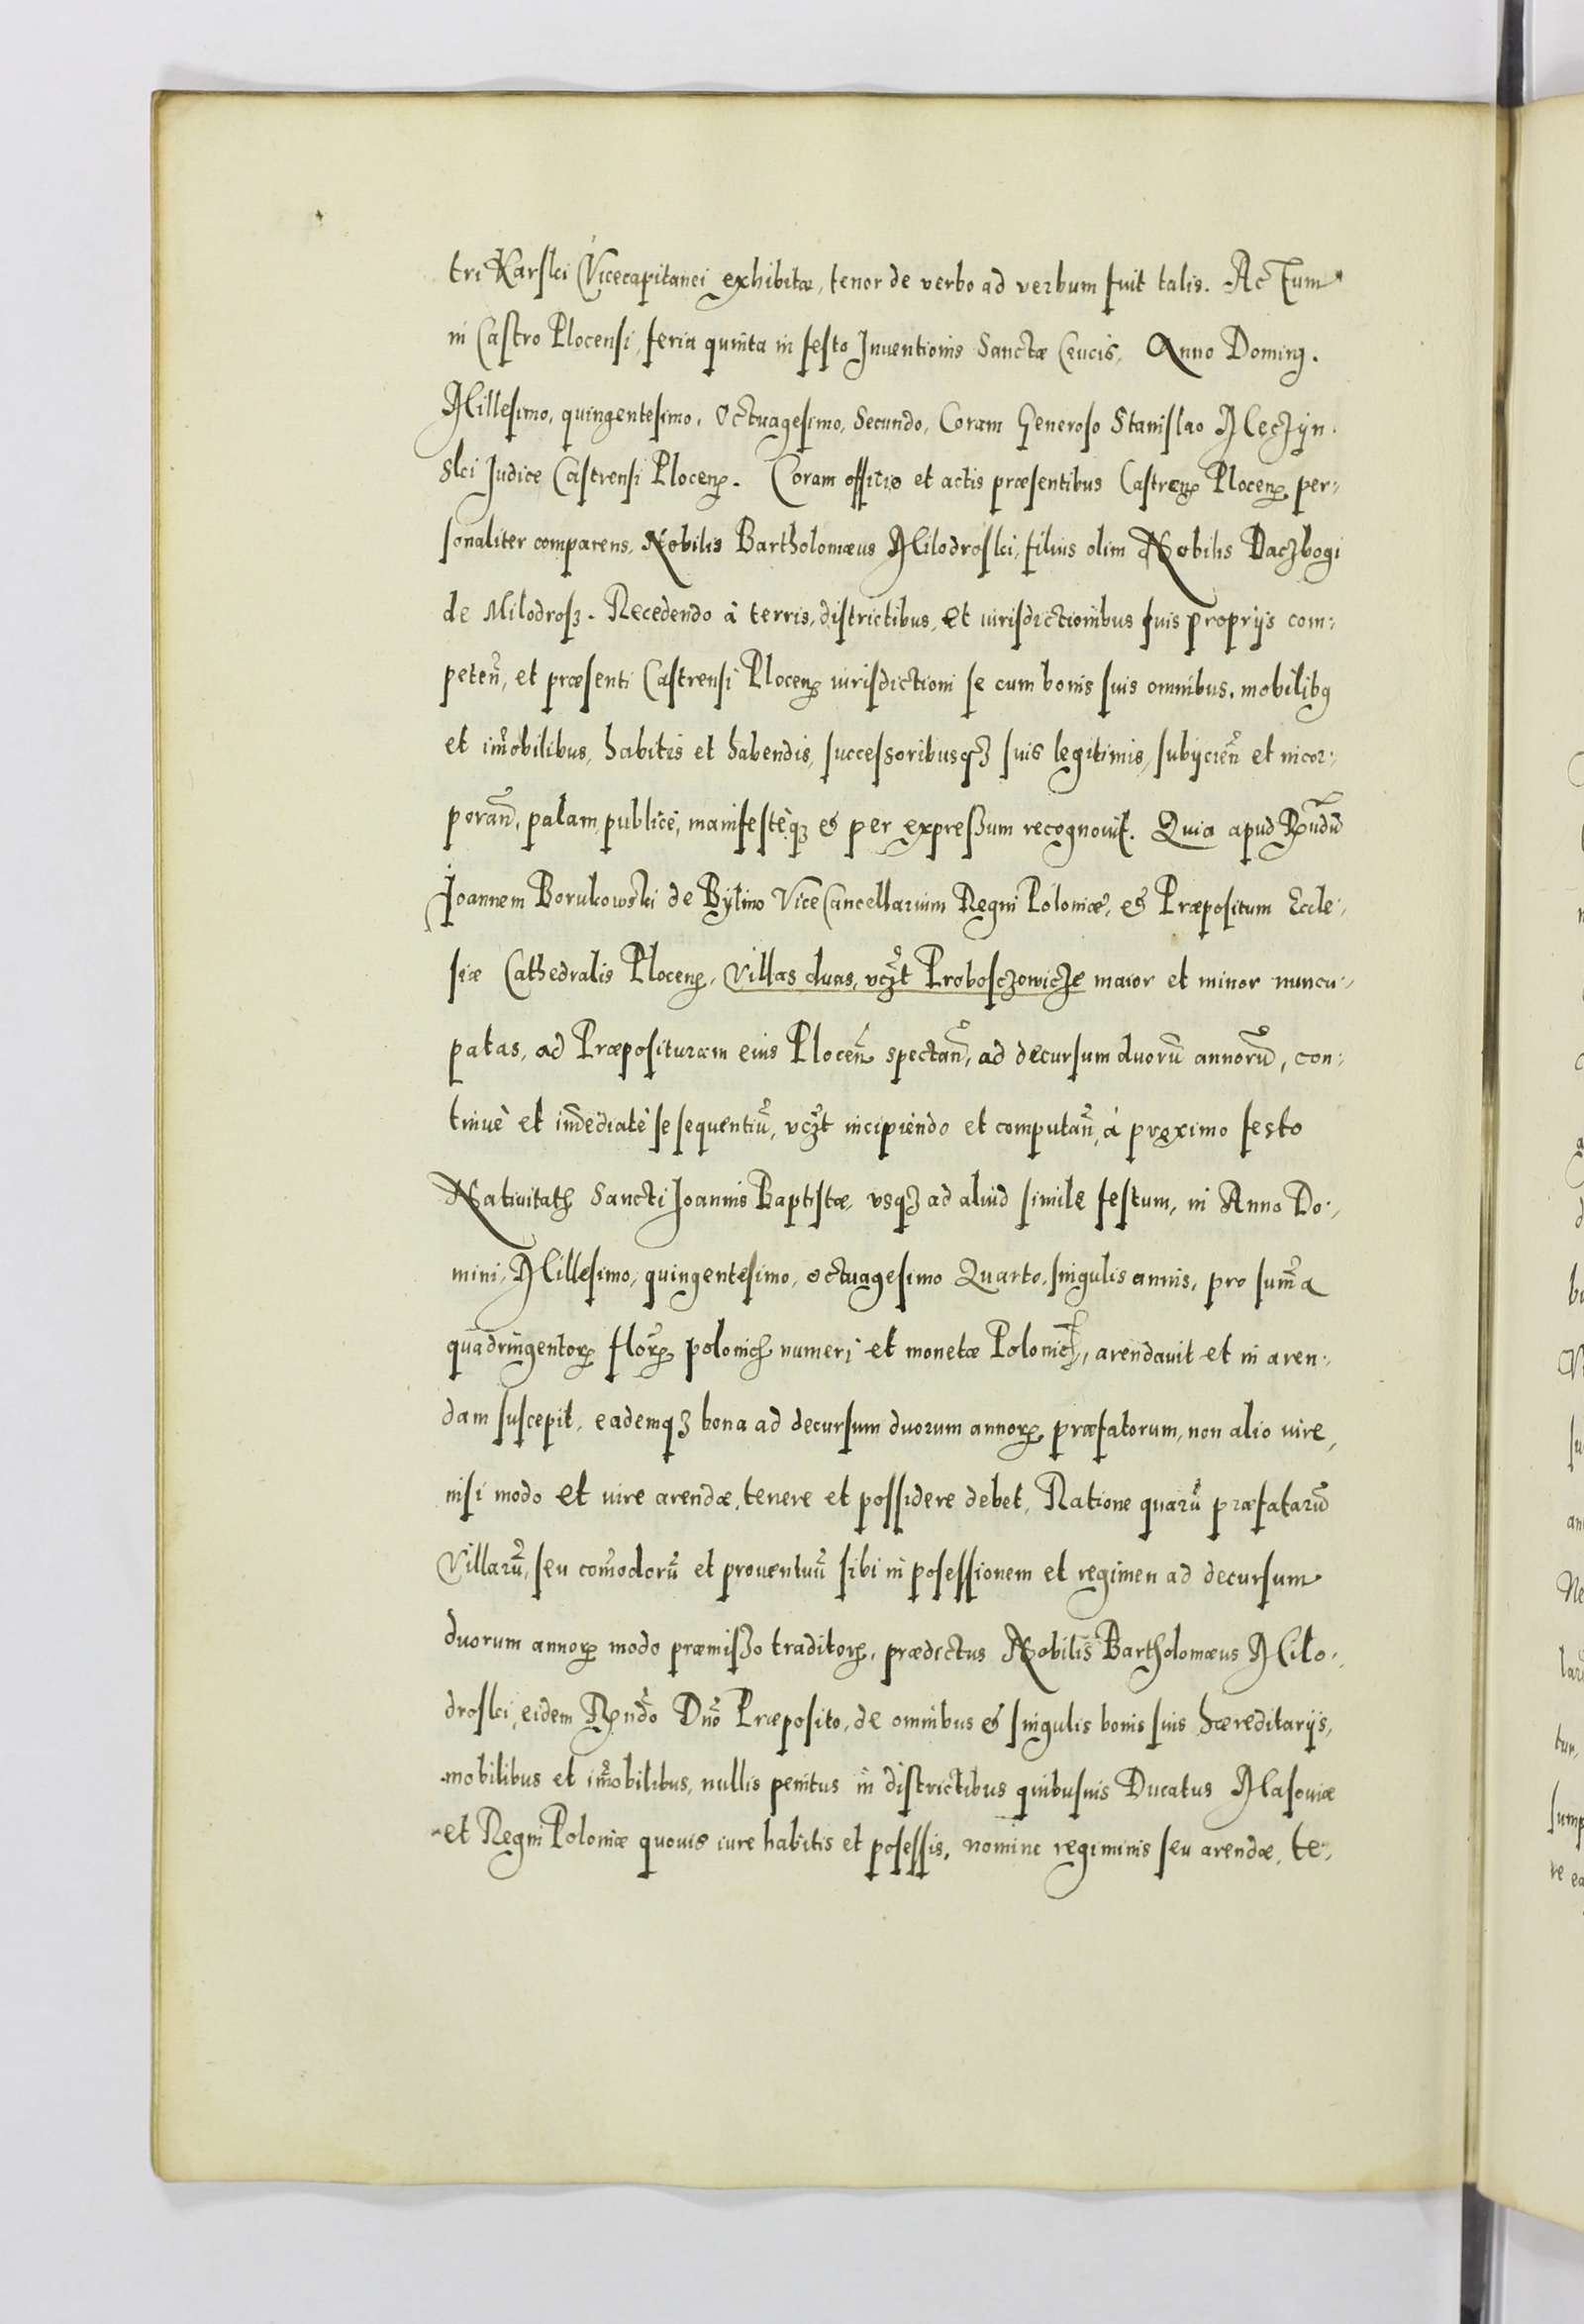 tri Karski Vicecapitanei exhibitæ, tenor de verbo ad verbum fuit talis. Actum
in Castro Plocensi, feria quinta in festo Inventionis Sanctæ Crucis, Anno Dominj.
Millesimo, quingentesimo, Octuagesimo, Secundo, Coram Generoso Stanislao Mleczÿn-
ski Judice Castrensi Plocen̄. Coram officio et actis præsentibus Castren̄ Plocen̄ per-
sonaliter comparens, Nobilis Bartholomæus Milodroski, filius olim Nobilis Daczbogi
de Milodrosz. Recedendo à terris, districtibus, et iurisdictionibus suis proprijs com-
peten̄, et præsenti Castrensi Plocen̄ iurisdictioni se cum bonis suis omnibus, mobilibq
et im̄obilibus, habitis et habendis, successoribusq3 suis legitimis, subijcien̄ et incor-
poran̄, palam, publicè, manifestèq3 & per expressum recognovit. Quia apud Rn̄dū
Joannem Borukowski de Bÿlino ViceCancellarium Regni Poloniæ, & Præpositum Eccle-
siæ Cathedralis Plocen̄, Villas duas, vcz̄t Probosczowicze maior et minor nuncu-
patas, ad Præposituram eius Plocen̄ spectan̄, ad decursum duorū annorū, con-
tinuè et im̄ediatè se sequentiū, vcz̄t incipiendo et computan̄, à proximo festo
Nativitatis Sancti Joannis Baptistæ, usq3 ad aliud simile festum, in Anno Do-
mini, Millesimo, quingentesimo, octuagesimo Quarto, singulis annis, pro sum̄a
quadringentorꝝ florꝝ polonich numeri et monetæ Polonich, arendavit et in aren-
dam suscepit, eademq3 bona ad decursum duorum annorꝝ præfatorum, non alio iure,
nisi modo et iure arendæ, tenere et possidere debet, Ratione quarū præfatarū
Villarū, seu com̄odorū et proventuū sibi in posessionem et regimen ad decursum
duorum annorꝝ modo præmisso traditorꝝ, prædictus Nobilis Bartholomæus Milo-
droski, eidem Rn̄do Dn̄o Præposito, de omnibus & singulis bonis suis hæreditarijs,
mobilibus et im̄obilibus, nullis penitus in districtibus quibusuis Ducatus Masoviæ
et Regni Poloniæ quouis iure habitis et posessis, nomine regiminis seu arendæ, te-